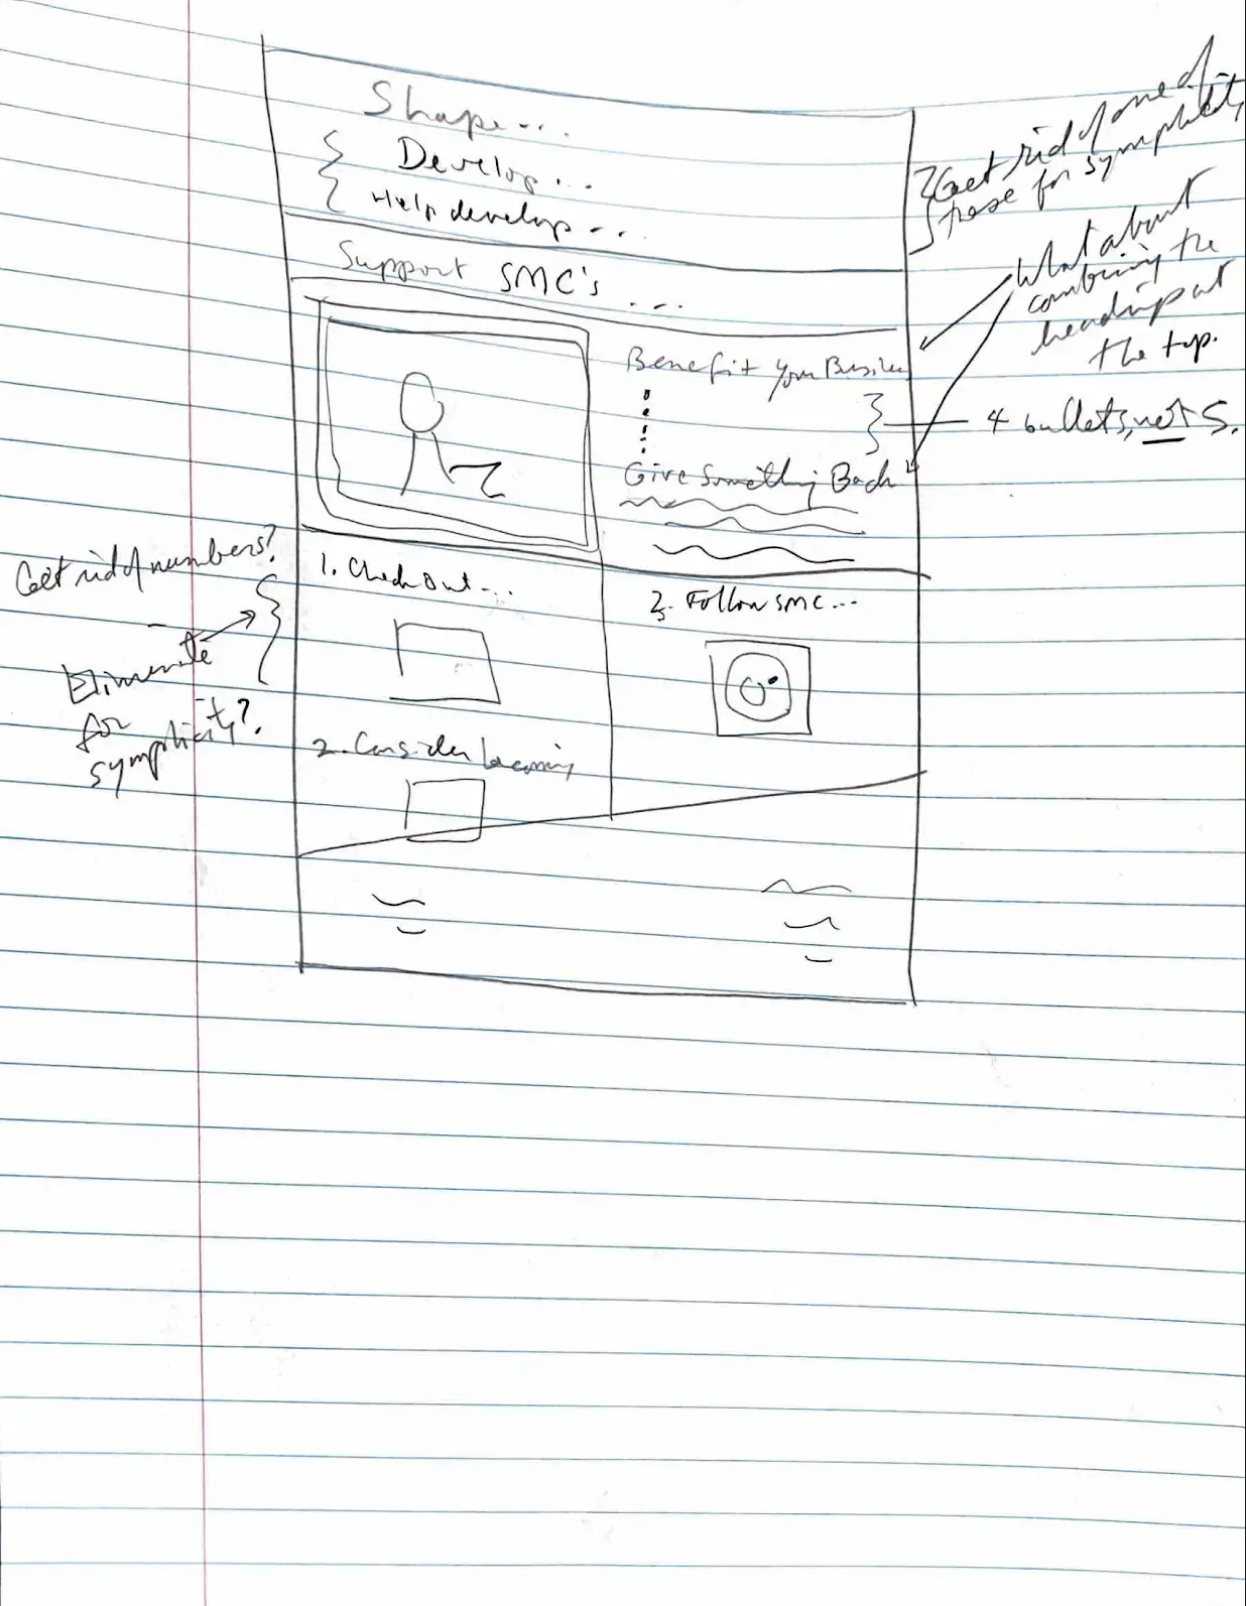 Shape...
Develop...
Help develop...
Support SMC's ...
Benefit your Busines
Give Something Back
1. Check out...
2. Consider becoming
3. Follow SMC...
Get rid of one of
these for symplicity
What about
combining the
headings at
the top.
4 bullets, not 5.
Get rid of numbers?
Eliminate
for
symplicity?